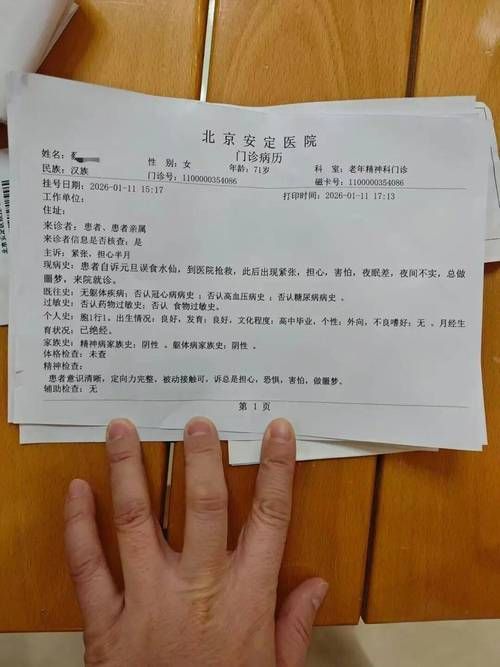 北京安定医院
门诊病历
姓名：
性 别：女 年龄：71岁 科 室：老年精神科门诊
民族：汉族 门诊号：1100000354086 磁卡号：1100000354086
挂号日期：2026-01-11 15:17 打印时间：2026-01-11 17:13
工作单位：
住址：
来诊者：患者、患者亲属
来诊者信息是否核查：是
主诉：紧张，担心半月
现病史：患者自诉元旦误食水仙，到医院抢救，此后出现紧张，担心，害怕，夜眠差，夜间不实，总做
噩梦，来院就诊。
既往史：无躯体疾病；否认冠心病病史；否认高血压病史；否认糖尿病病史 。
过敏史：否认药物过敏史；否认 食物过敏史。
个人史：胞1行1。出生情况：良好，发育：良好，文化程度：高中毕业，个性：外向，不良嗜好：无 。月经生
育状况：已绝经。
家族史：精神病家族史：阴性 。躯体病家族史：阴性 。
体格检查：未查
精神检查：
患者意识清晰，定向力完整，被动接触可，诉总是担心，恐惧，害怕，做噩梦。
辅助检查：无
第 1 页